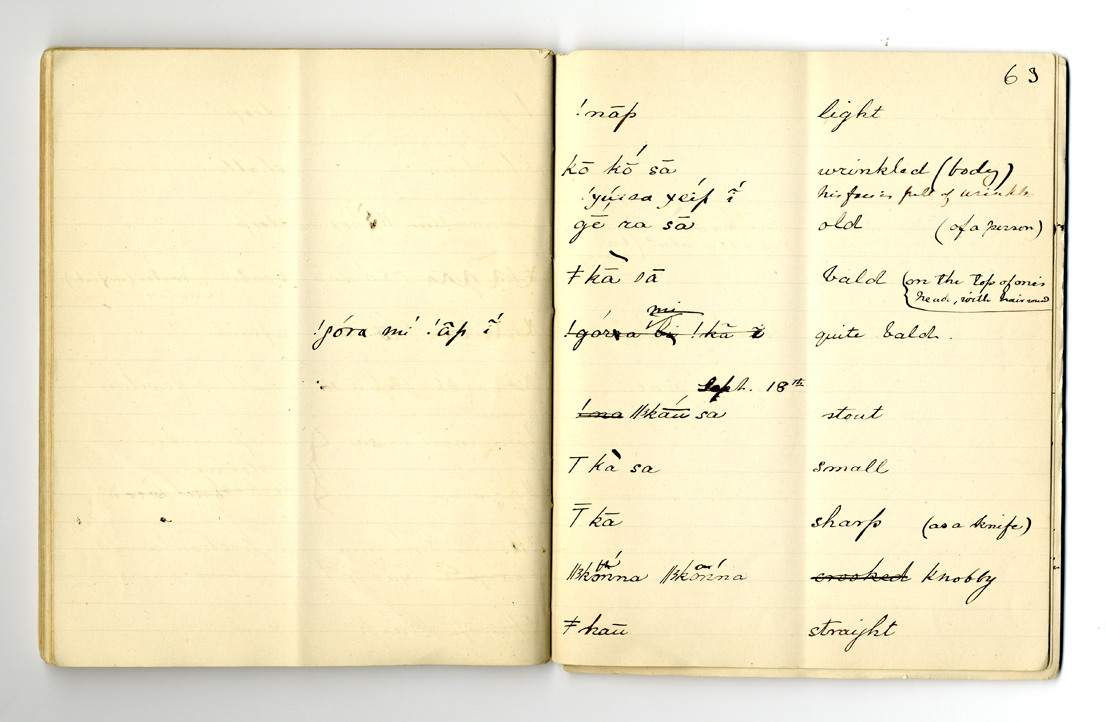 !góra mí !ãp ĩ́
63
!nāp light
kō kṓ sā wrinkled (body)
his face is full of wrinkles
gē ra sā old (of a person)
ǂkā̀ sā bald (on the top of one's
head, with hair round
mi
!górra !kā ĩ quite bald.
Sept. 18th
!na ǁkāū́ sa stout
T kà sa small
T̄ kā sharp (as a knife)
crooked knobby
ǂkaū straight